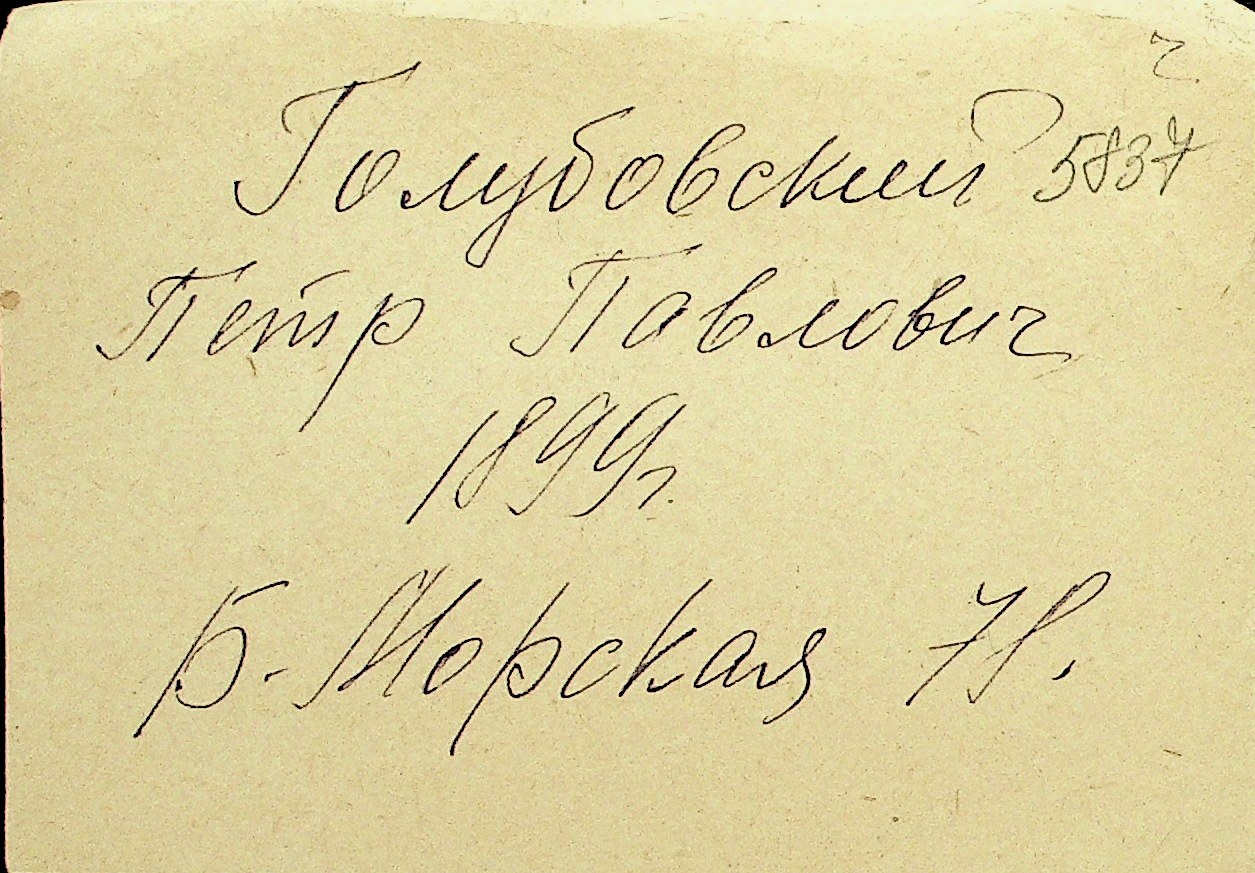 Голубовский 5837
Петр Павлович
1899г.
Б. Морская 78.